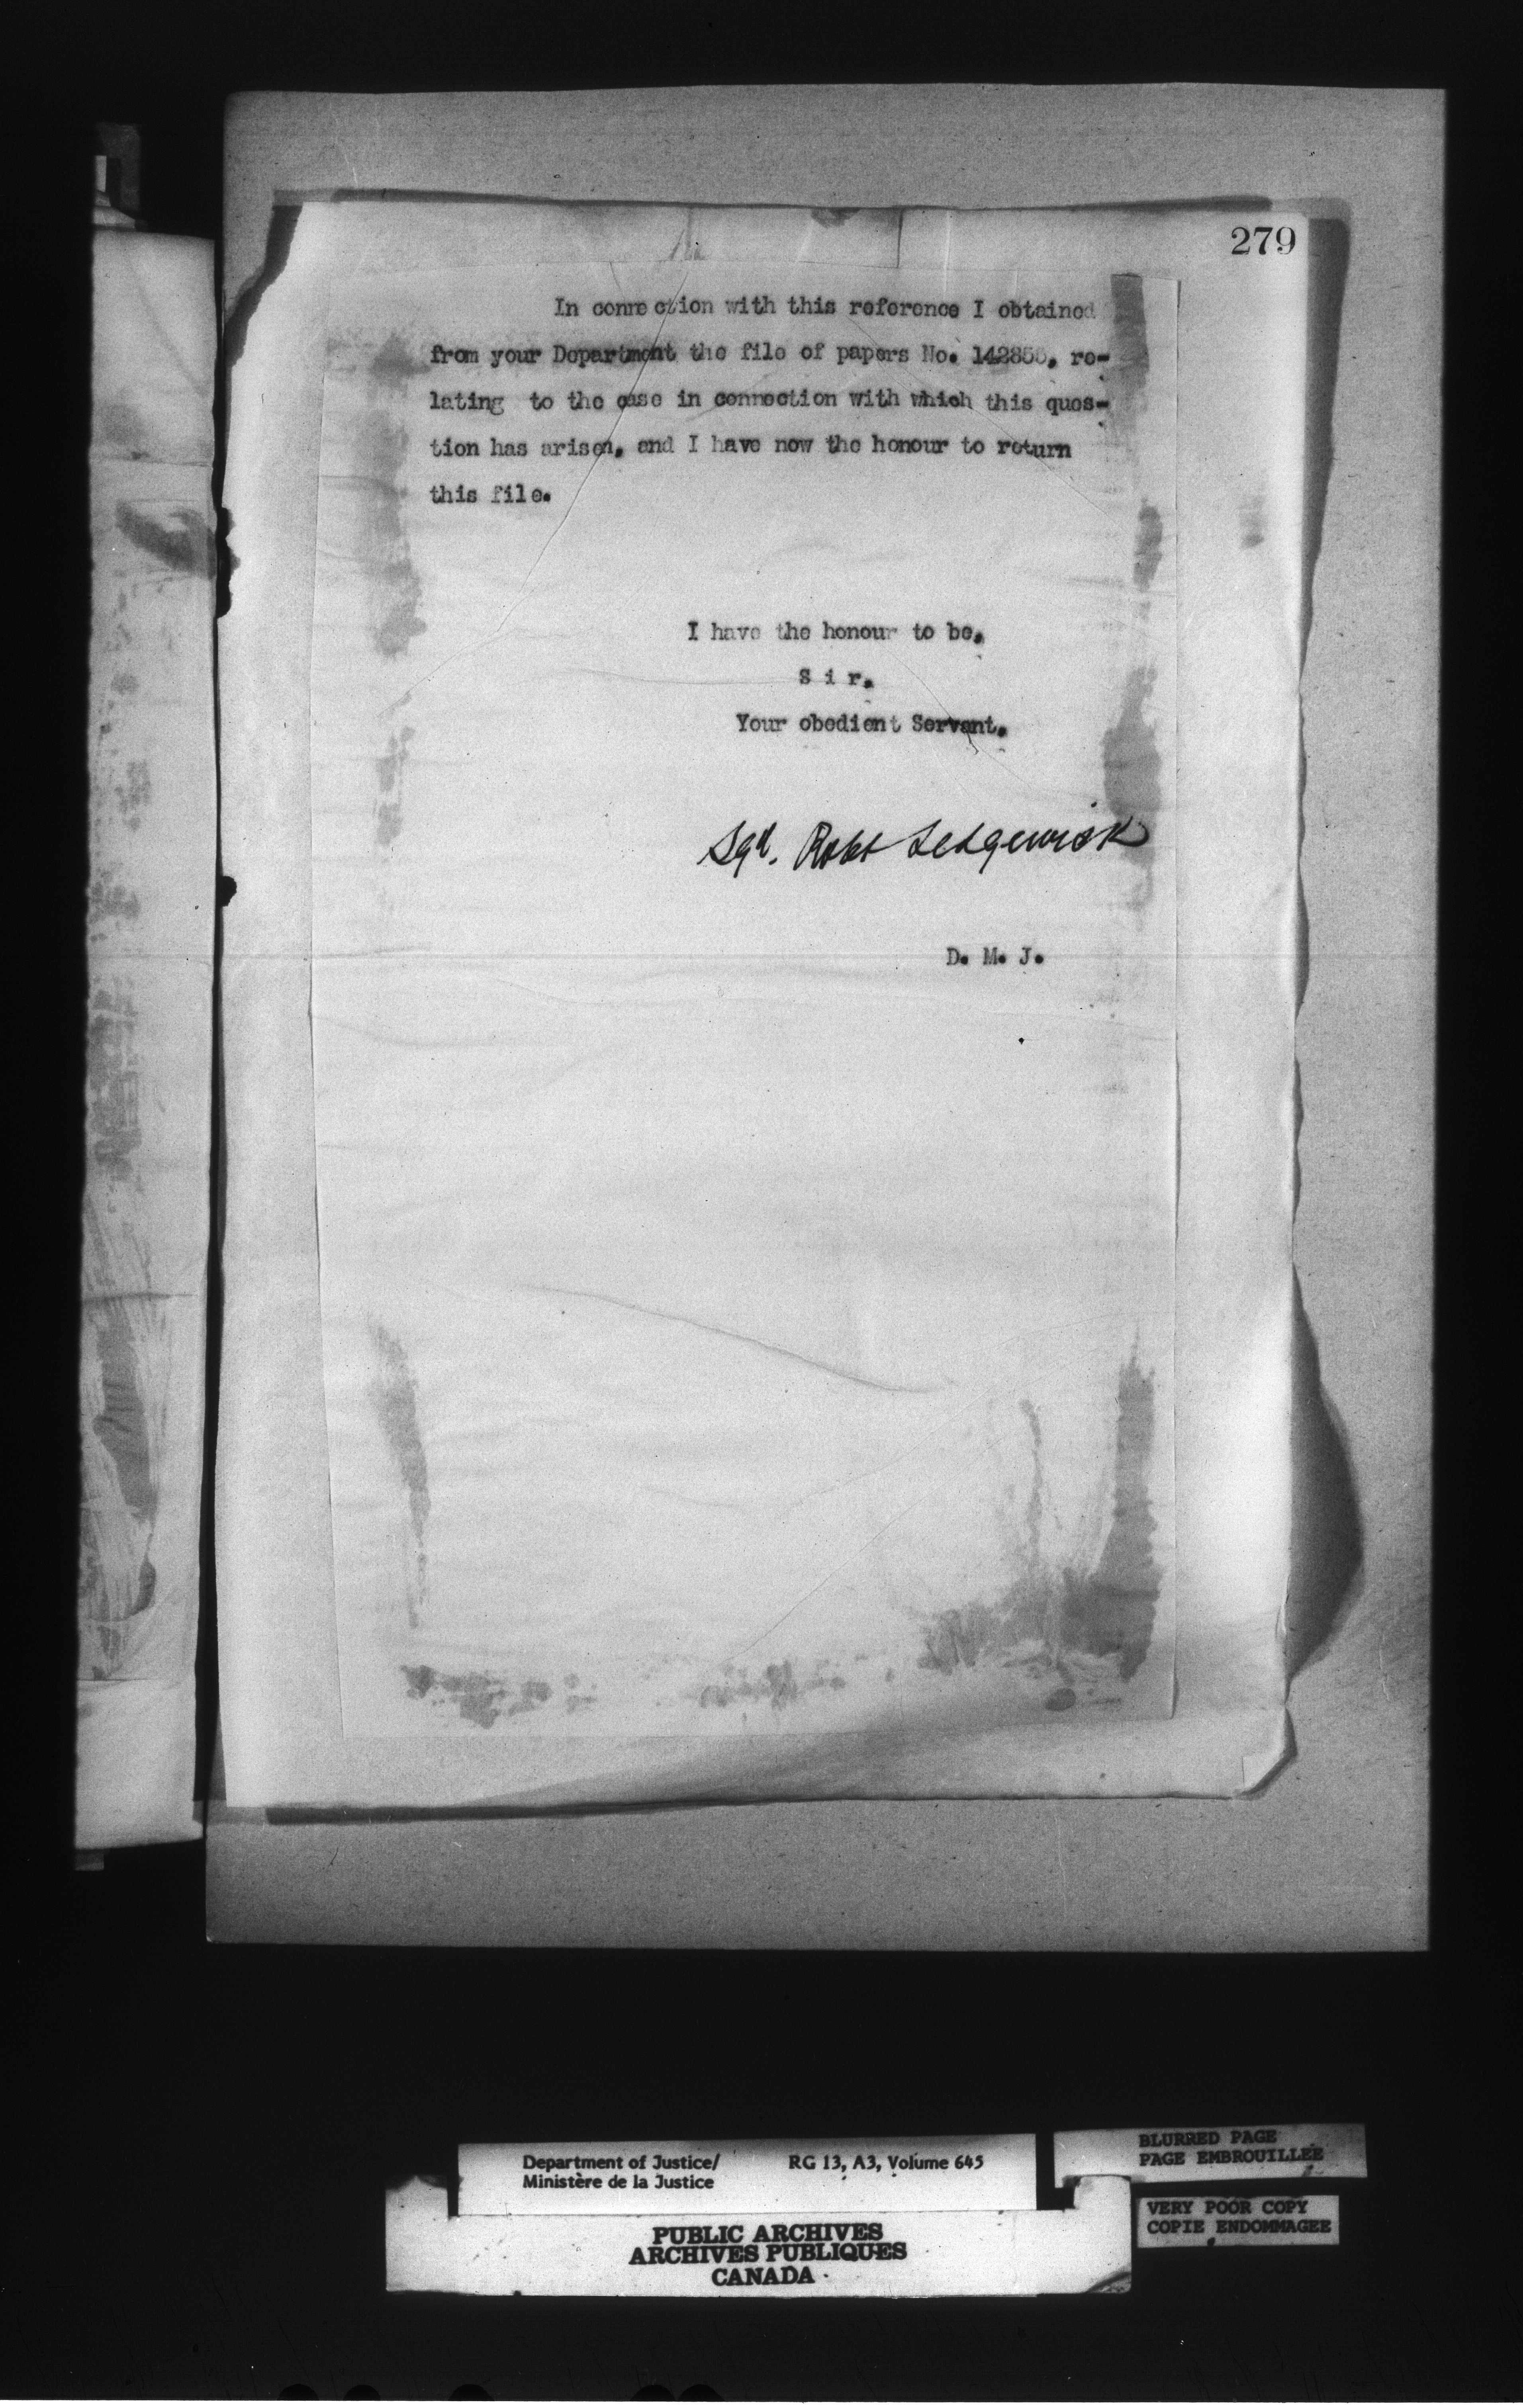 279
In connection with this reference I obtained
from your Department the file of papers No. 142855, re-
lating to the case in connection with which this ques-
tion has arisen, and I have now the honour to return
this file.
I have the honour to be,
S i r,
Your obedient Servant,
Sgd. Robt Sedgewick
D. M. J.
Department of Justice/
Ministère de la Justice
RG 13, A3, Volume 645
BLURRED PAGE
PAGE EMBROUILLEE
VERY POOR COPY
COPIE ENDOMMAGEE
PUBLIC ARCHIVES
ARCHIVES PUBLIQUES
CANADA